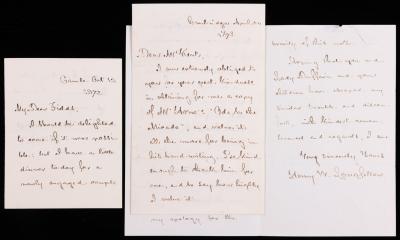 Camb. Oct 15
1877
My Dear Fields,
I should be delighted
to come if it was possi-
ble; but I have a little
dinner to-day for a
newly engaged couple
Cambridge April
1873
Dear Mr
I am extremely obliged to
you for your great kindness
in obtaining for me a copy
of Mr Horne's "Ode to the
Mikado"; and value it
all the more for being in
his hand writing. Be kind
enough to thank him for
me, and to say how highly
I value it.
my apology for the
of this note.
Hoping that you and
Lady Dufferin and your
children have escaped any
and
with kindest remem-
brance and regards, I am
Very sincerely Yours
Henry W. Longfellow